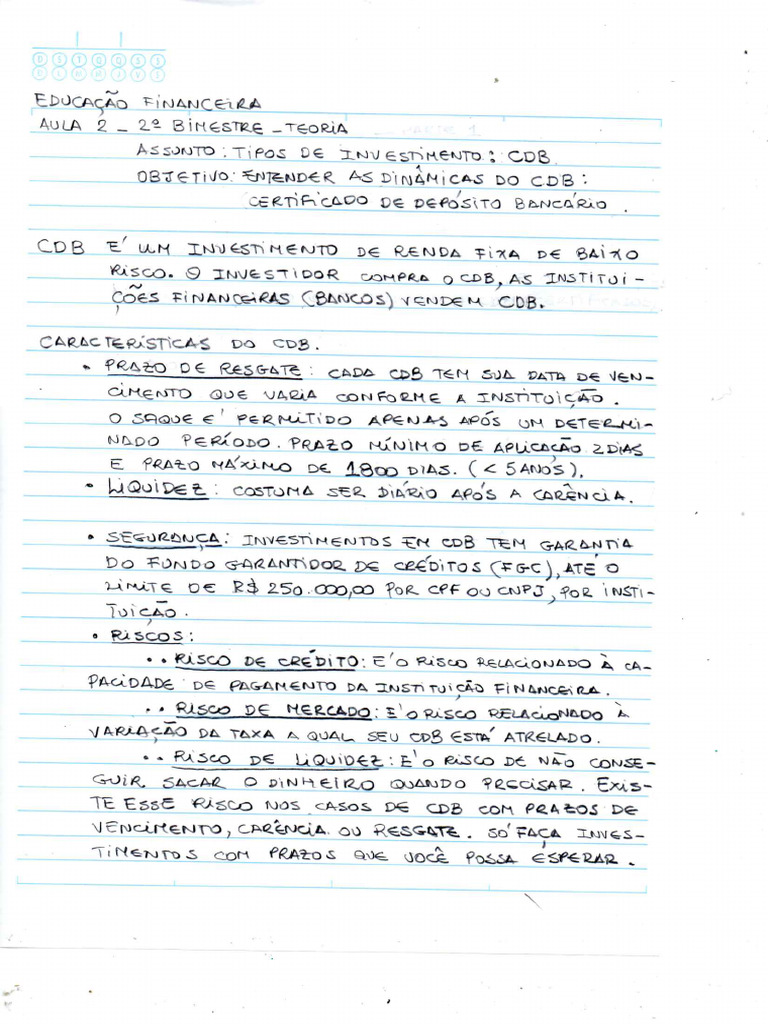 D S T Q Q S S
D L M M J V S
EDUCAÇÃO FINANCEIRA
AULA 2 - 2º BIMESTRE - TEORIA
ASSUNTO: TIPOS DE INVESTIMENTO: CDB
OBJETIVO: ENTENDER AS DINÂMICAS DO CDB:
CERTIFICADO DE DEPÓSITO BANCÁRIO.
CDB É UM INVESTIMENTO DE RENDA FIXA DE BAIXO
RISCO. O INVESTIDOR COMPRA O CDB, AS INSTITUI-
ÇÕES FINANCEIRAS (BANCOS) VENDEM CDB.
CARACTERÍSTICAS DO CDB.
• PRAZO DE RESGATE: CADA CDB TEM SUA DATA DE VEN-
CIMENTO QUE VARIA CONFORME A INSTITUIÇÃO.
O SAQUE É PERMITIDO APENAS APÓS UM DETERMI-
NADO PERÍODO. PRAZO MÍNIMO DE APLICAÇÃO 2 DIAS
E PRAZO MÁXIMO DE 1800 DIAS. (< 5 ANOS).
• LIQUIDEZ: COSTUMA SER DIÁRIO APÓS A CARÊNCIA.
• SEGURANÇA: INVESTIMENTOS EM CDB TEM GARANTIA
DO FUNDO GARANTIDOR DE CRÉDITOS (FGC), ATÉ O
LIMITE DE R$ 250.000,00 POR CPF OU CNPJ, POR INSTI-
TUIÇÃO.
• RISCOS:
•• RISCO DE CRÉDITO: É O RISCO RELACIONADO À CA-
PACIDADE DE PAGAMENTO DA INSTITUIÇÃO FINANCEIRA.
•• RISCO DE MERCADO: É O RISCO RELACIONADO À
VARIAÇÃO DA TAXA A QUAL SEU CDB ESTÁ ATRELADO.
•• RISCO DE LIQUIDEZ: É O RISCO DE NÃO CONSE-
GUIR SACAR O DINHEIRO QUANDO PRECISAR. EXIS-
TE ESSE RISCO NOS CASOS DE CDB COM PRAZOS DE
VENCIMENTO, CARÊNCIA OU RESGATE. SÓ FAÇA INVES-
TIMENTOS COM PRAZOS QUE VOCÊ POSSA ESPERAR.